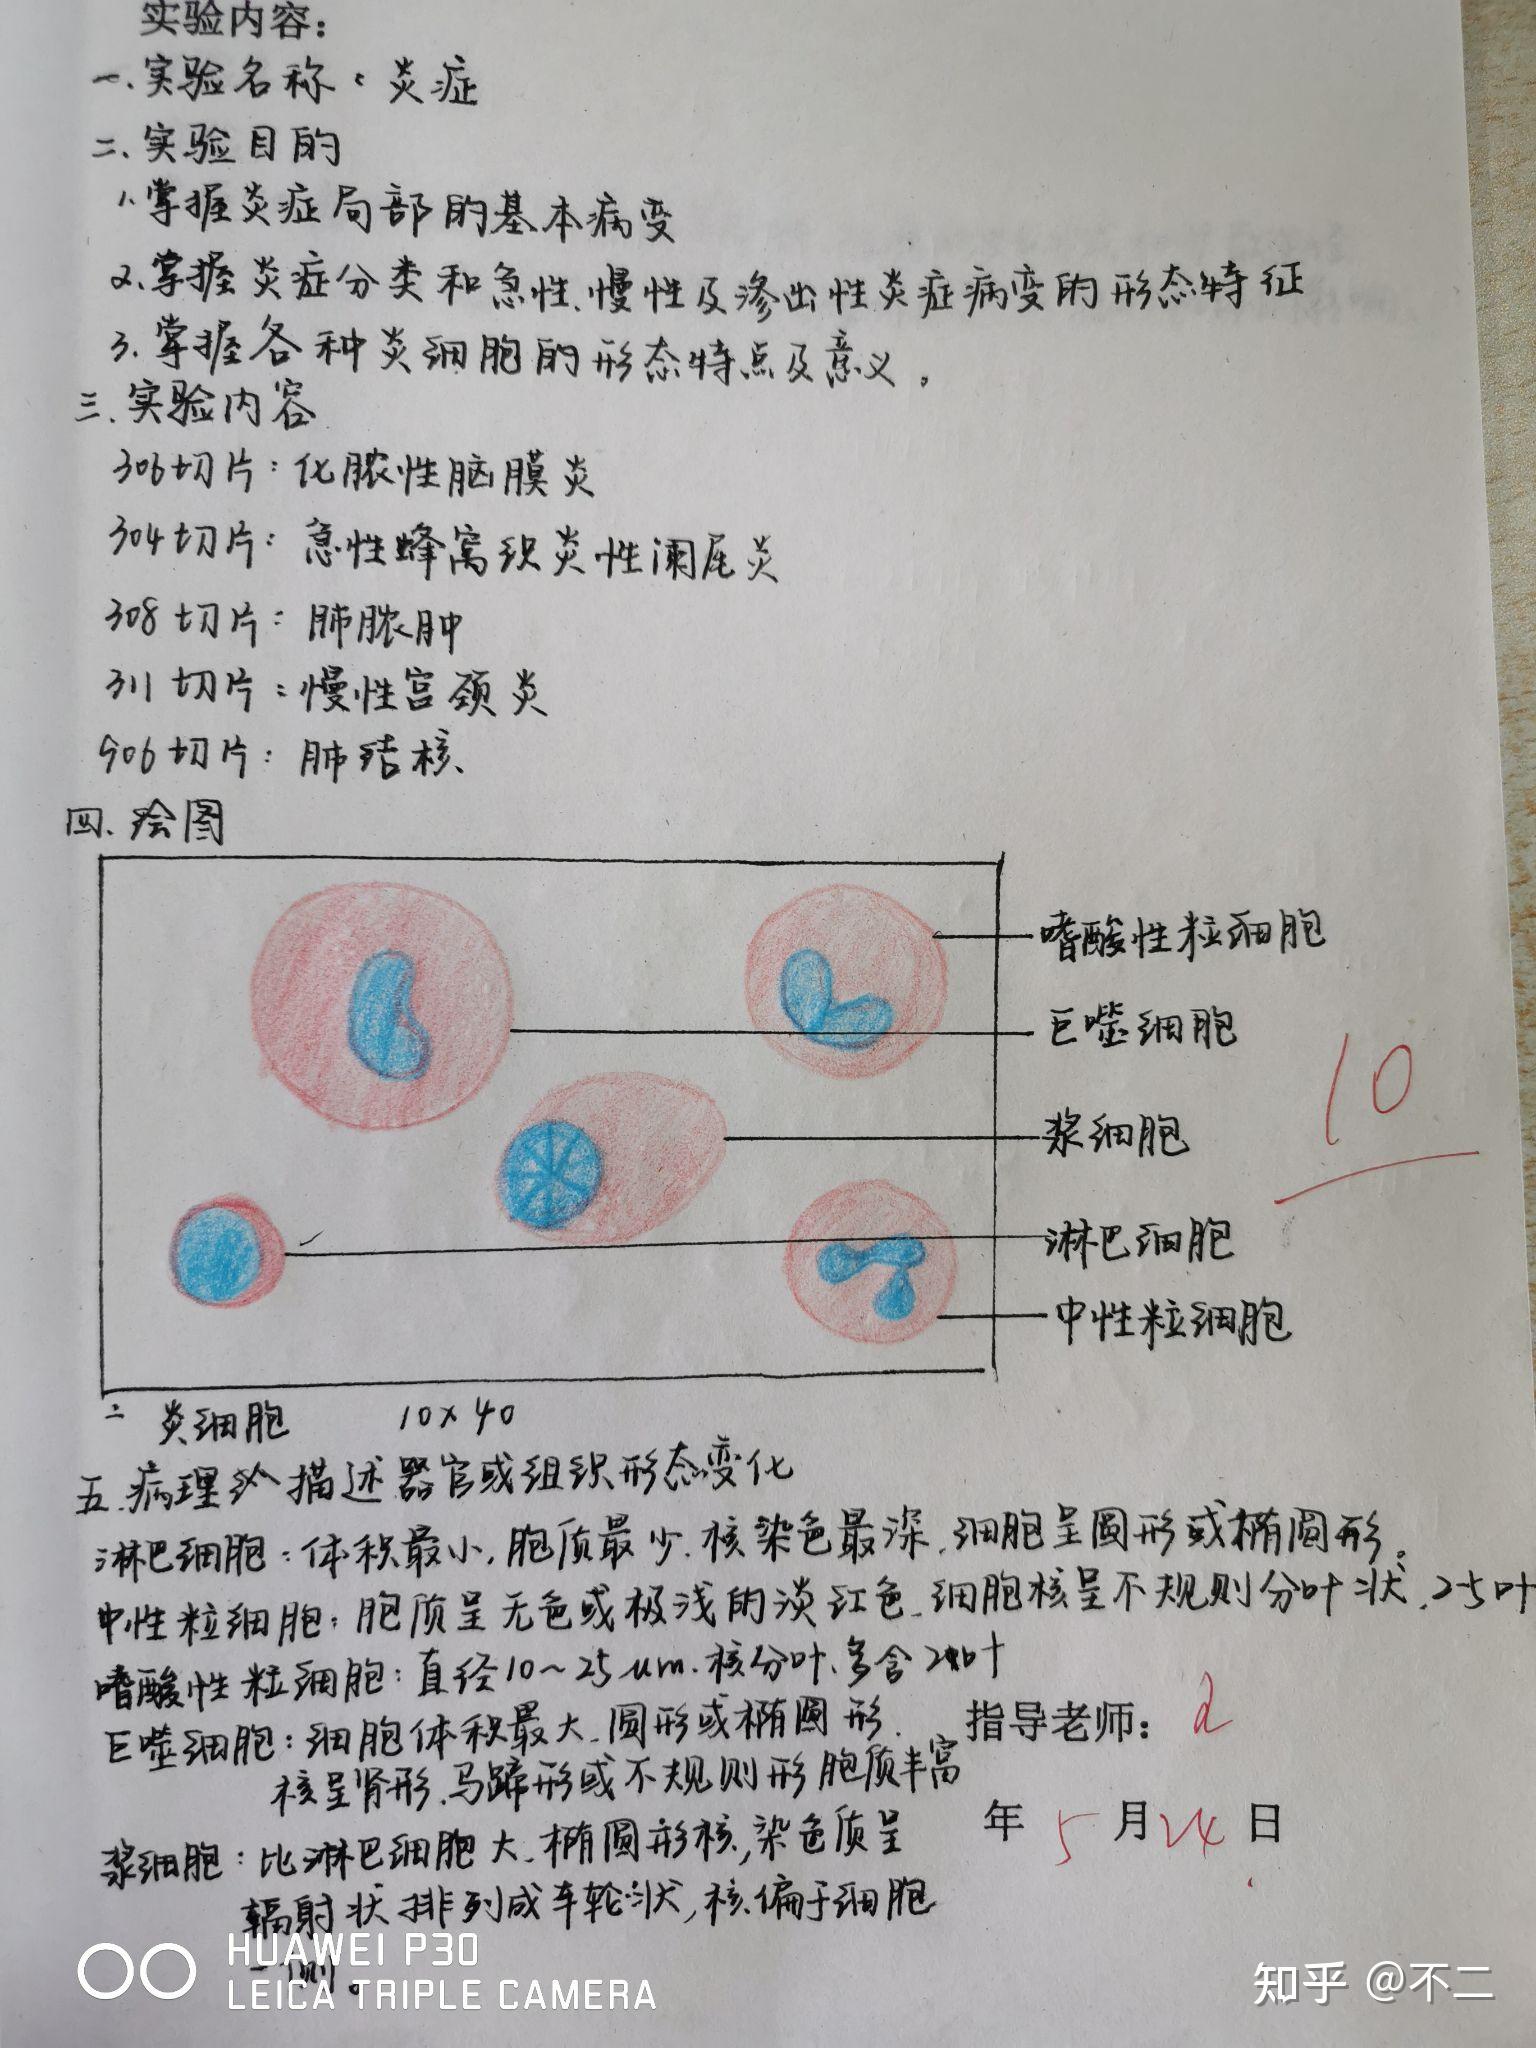 实验内容:
一.实验名称:炎症
二.实验目的
1.掌握炎症局部的基本病变
2.掌握炎症分类和急性.慢性及渗出性炎症病变的形态特征
3.掌握各种炎细胞的形态特点及意义。
三.实验内容
306切片:化脓性脑膜炎
304切片:急性蜂窝织炎性阑尾炎
308切片:肺脓肿
311切片:慢性宫颈炎
906切片:肺结核.
四.绘图
嗜酸性粒细胞
巨噬细胞
10
浆细胞
淋巴细胞
中性粒细胞
炎细胞 10×40
五.病理 描述器官或组织形态变化
淋巴细胞:体积最小,胞质最少.核染色最深.细胞呈圆形或椭圆形。
中性粒细胞:胞质呈无色或极浅的淡红色.细胞核呈不规则分叶状.2-5叶
嗜酸性粒细胞:直径10~25um.核分叶.多含2叶
巨噬细胞:细胞体积最大.圆形或椭圆形.
指导老师:
核呈肾形.马蹄形或不规则形胞质丰富
年 5 月 24 日
浆细胞:比淋巴细胞大.椭圆形核,染色质呈
辐射状排列成车轮状,核偏于细胞
一侧。
HUAWEI P30
LEICA TRIPLE CAMERA
知乎 @不二